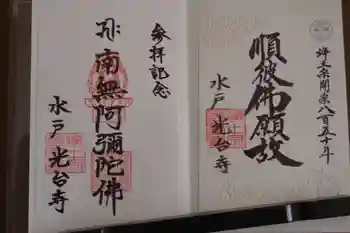 浄土宗開宗八百五十年
順彼佛願故
水戸 光台寺
参拝記念
南無阿彌陀佛
水戸 光台寺